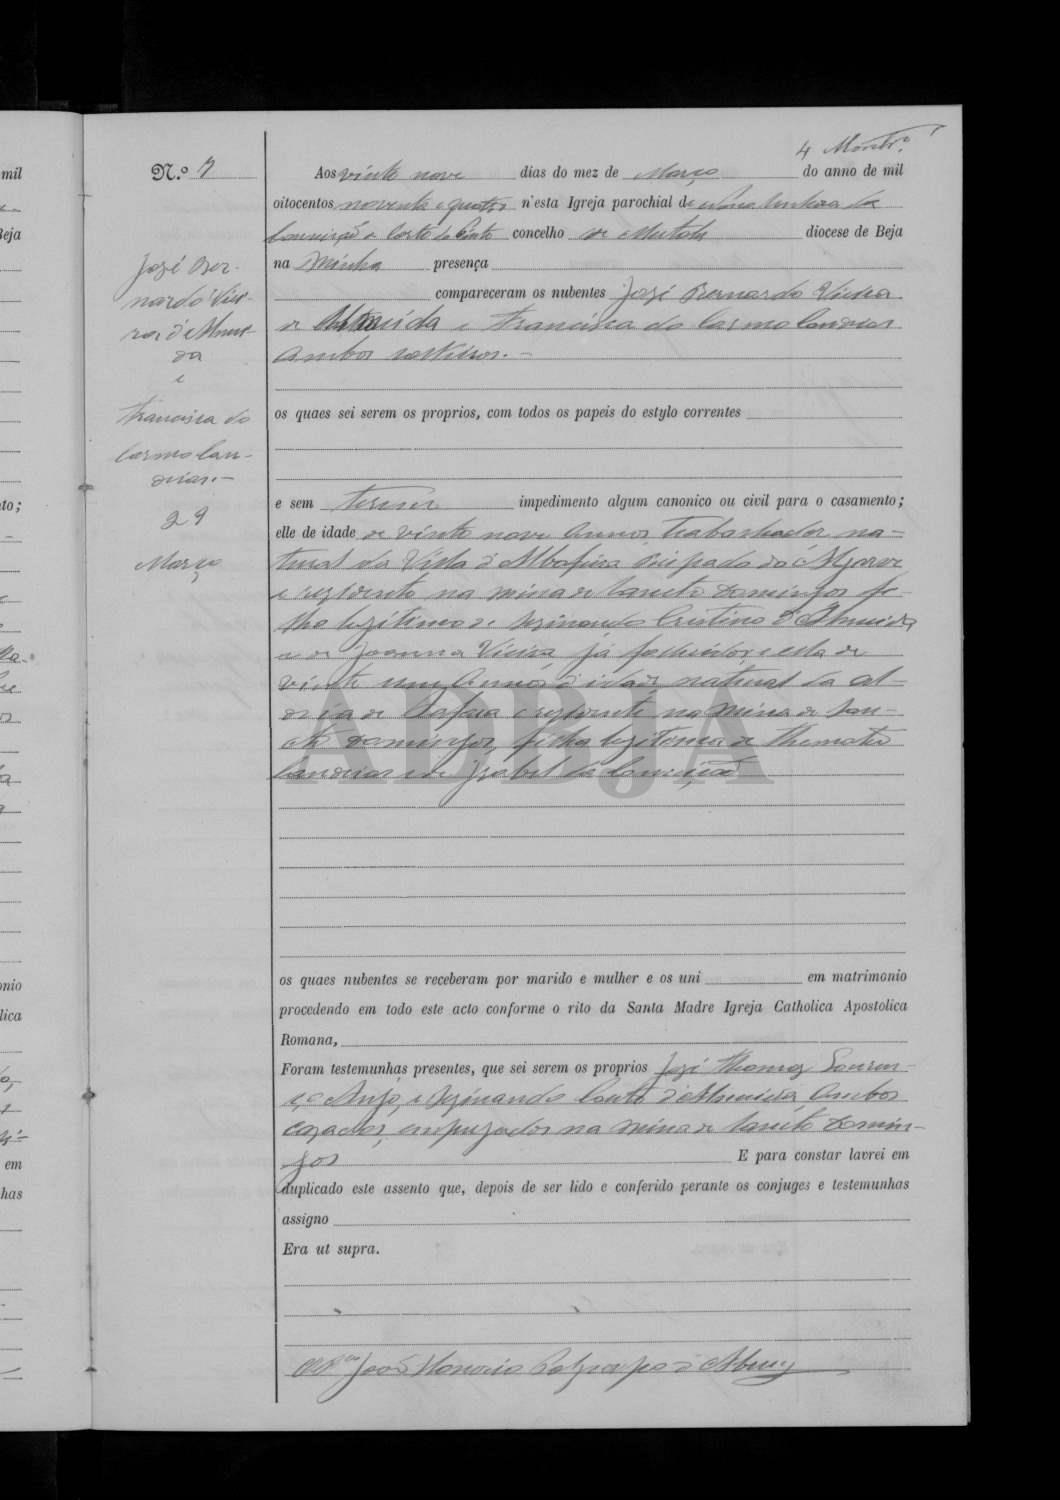 4
N.º 7
Aos vinte nove dias do mez de Março do anno de mil
oitocentos noventa e quatro n'esta Igreja parochial de Nossa Senhora da
Conceição e Corte do Pinto concelho de Mertola diocese de Beja
na minha presença
compareceram os nubentes José Bernardo Vieira
de Almeida e Francisca do Carmo Candeias
ambos solteiros. –
os quaes sei serem os proprios, com todos os papeis do estylo correntes
e sem terem impedimento algum canonico ou civil para o casamento;
elle de idade de vinte nove annos, trabalhador, na-
tural da Villa d'Albufeira Bispado do Algarve
e residente na mina de Sancto Domingos fi-
lho legitimo de Sezinando Cristino d'Almeida
e de Joanna Vieira, já fallecidos, e ella de
vinte um annos d'idade, natural da al-
deia de Safara e residente na mina de San-
cto Domingos, filha legitima de
Candeias e de Izabel da Conceição
José Ber-
nardo Viei-
ra d'Almei-
da
e
Francisca do
Carmo Can-
deias. –
29
Março
os quaes nubentes se receberam por marido e mulher e os uni em matrimonio
procedendo em todo este acto conforme o rito da Santa Madre Igreja Catholica Apostolica
Romana,
Foram testemunhas presentes, que sei serem os proprios José Thomaz Louren-
ço Anjo, e Sezinando Couto d'Almeida, ambos
casados, empregados na mina de Sancto Domin-
gos E para constar lavrei em
duplicado este assento que, depois de ser lido e conferido perante os conjuges e testemunhas
assigno
Era ut supra.
João Honorio d'Abreu
ADBJA
mil
Beja
to;
onio
lica
em
has